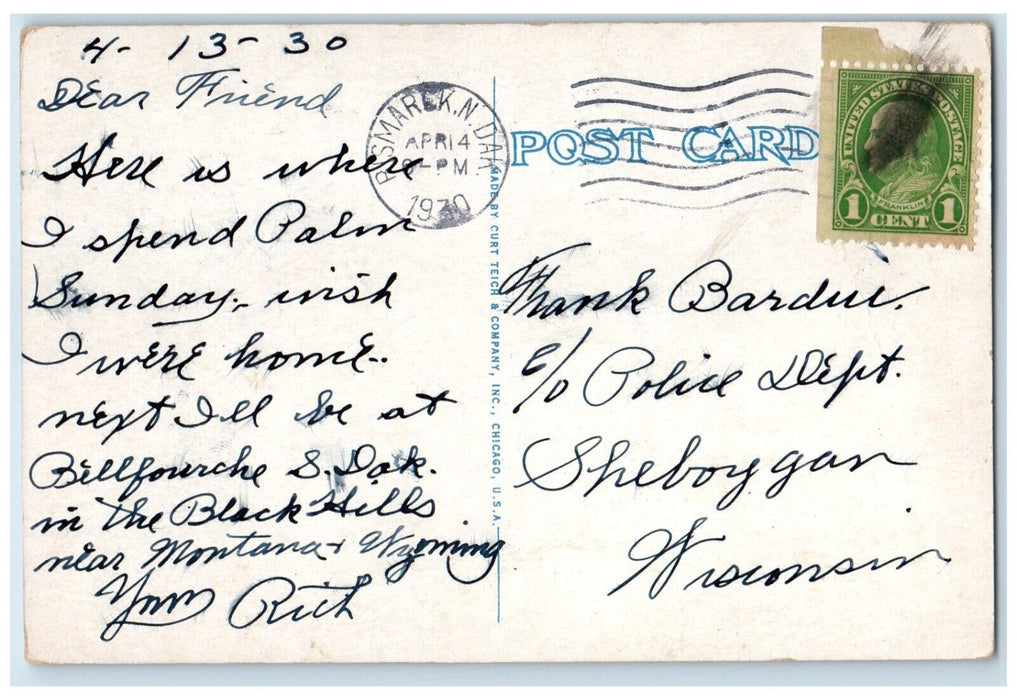 4-13-30
Dear Friend
Here is where
I spend Palm
Sunday, wish
I were home.
next I'll be at
Bellfourche S. Dak.
in the Black Hills
near Montana & Wyoming
Rich
BISMARCK, N. DAK
APR 14
PM
1930
POST CARD
MADE BY CURT TEICH & COMPANY, INC., CHICAGO, U.S.A.
UNITED STATES POSTAGE
FRANKLIN
1 CENT 1
Frank Bardue.
c/o Police Dept.
Sheboygan
Wisconsin